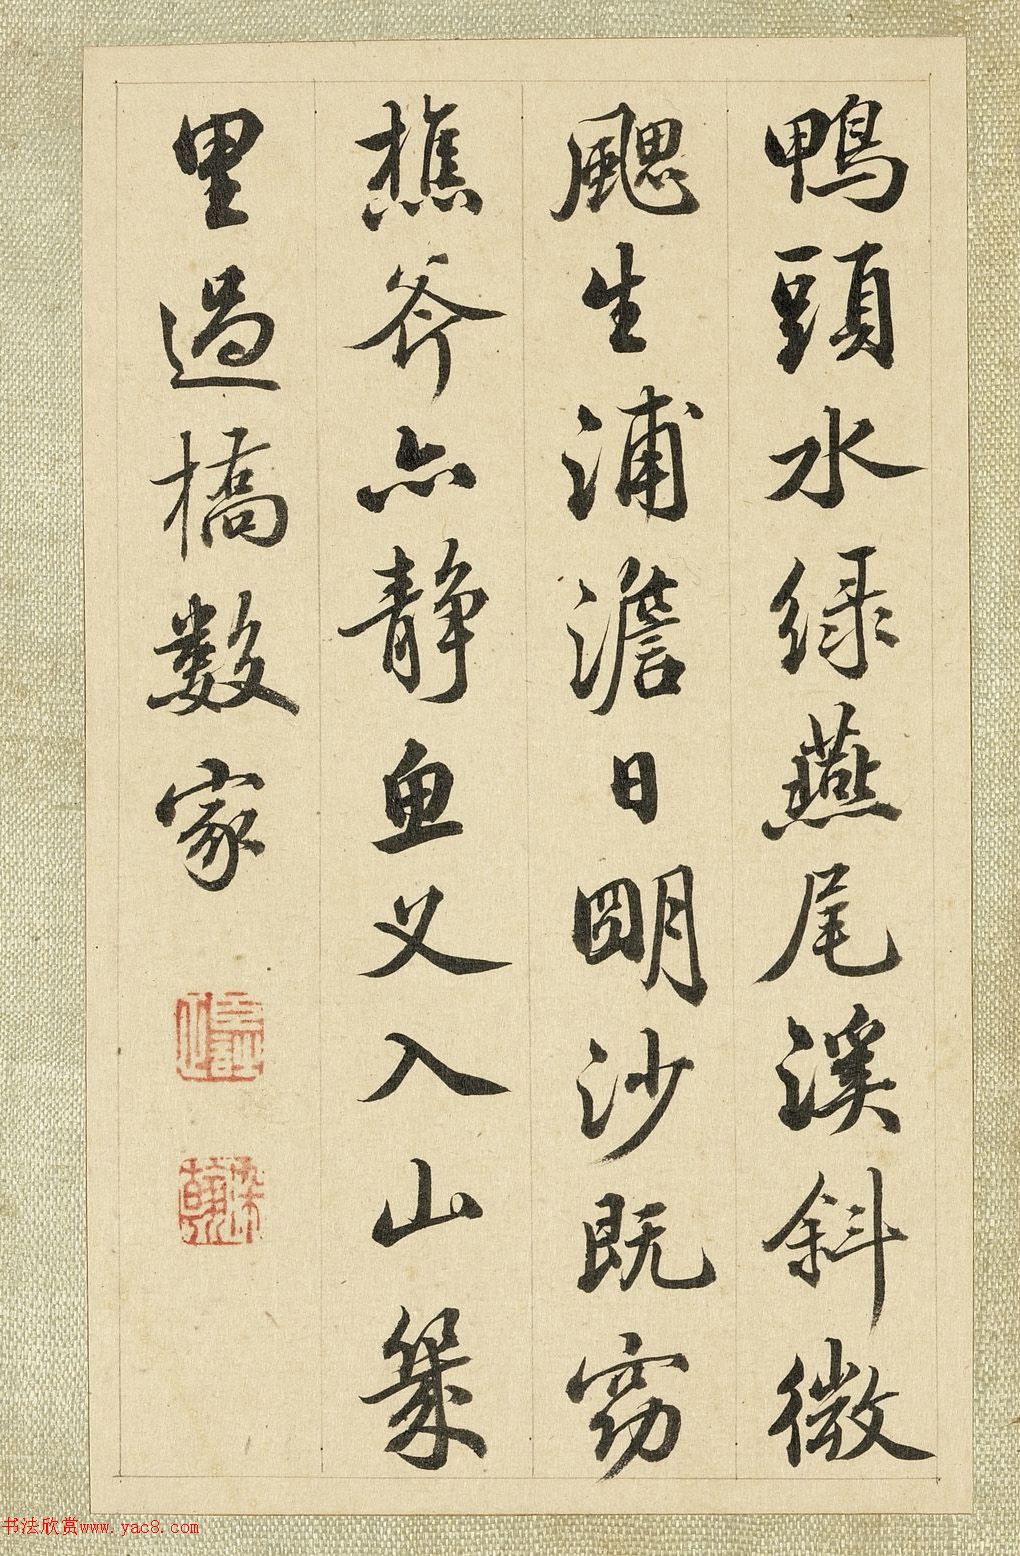 鴨頭水緑燕尾溪斜微
颸生浦澹日明沙既窈
樵斧亦静魚叉入山幾
里過橋數家
染翰
书法欣赏www.yac8.com